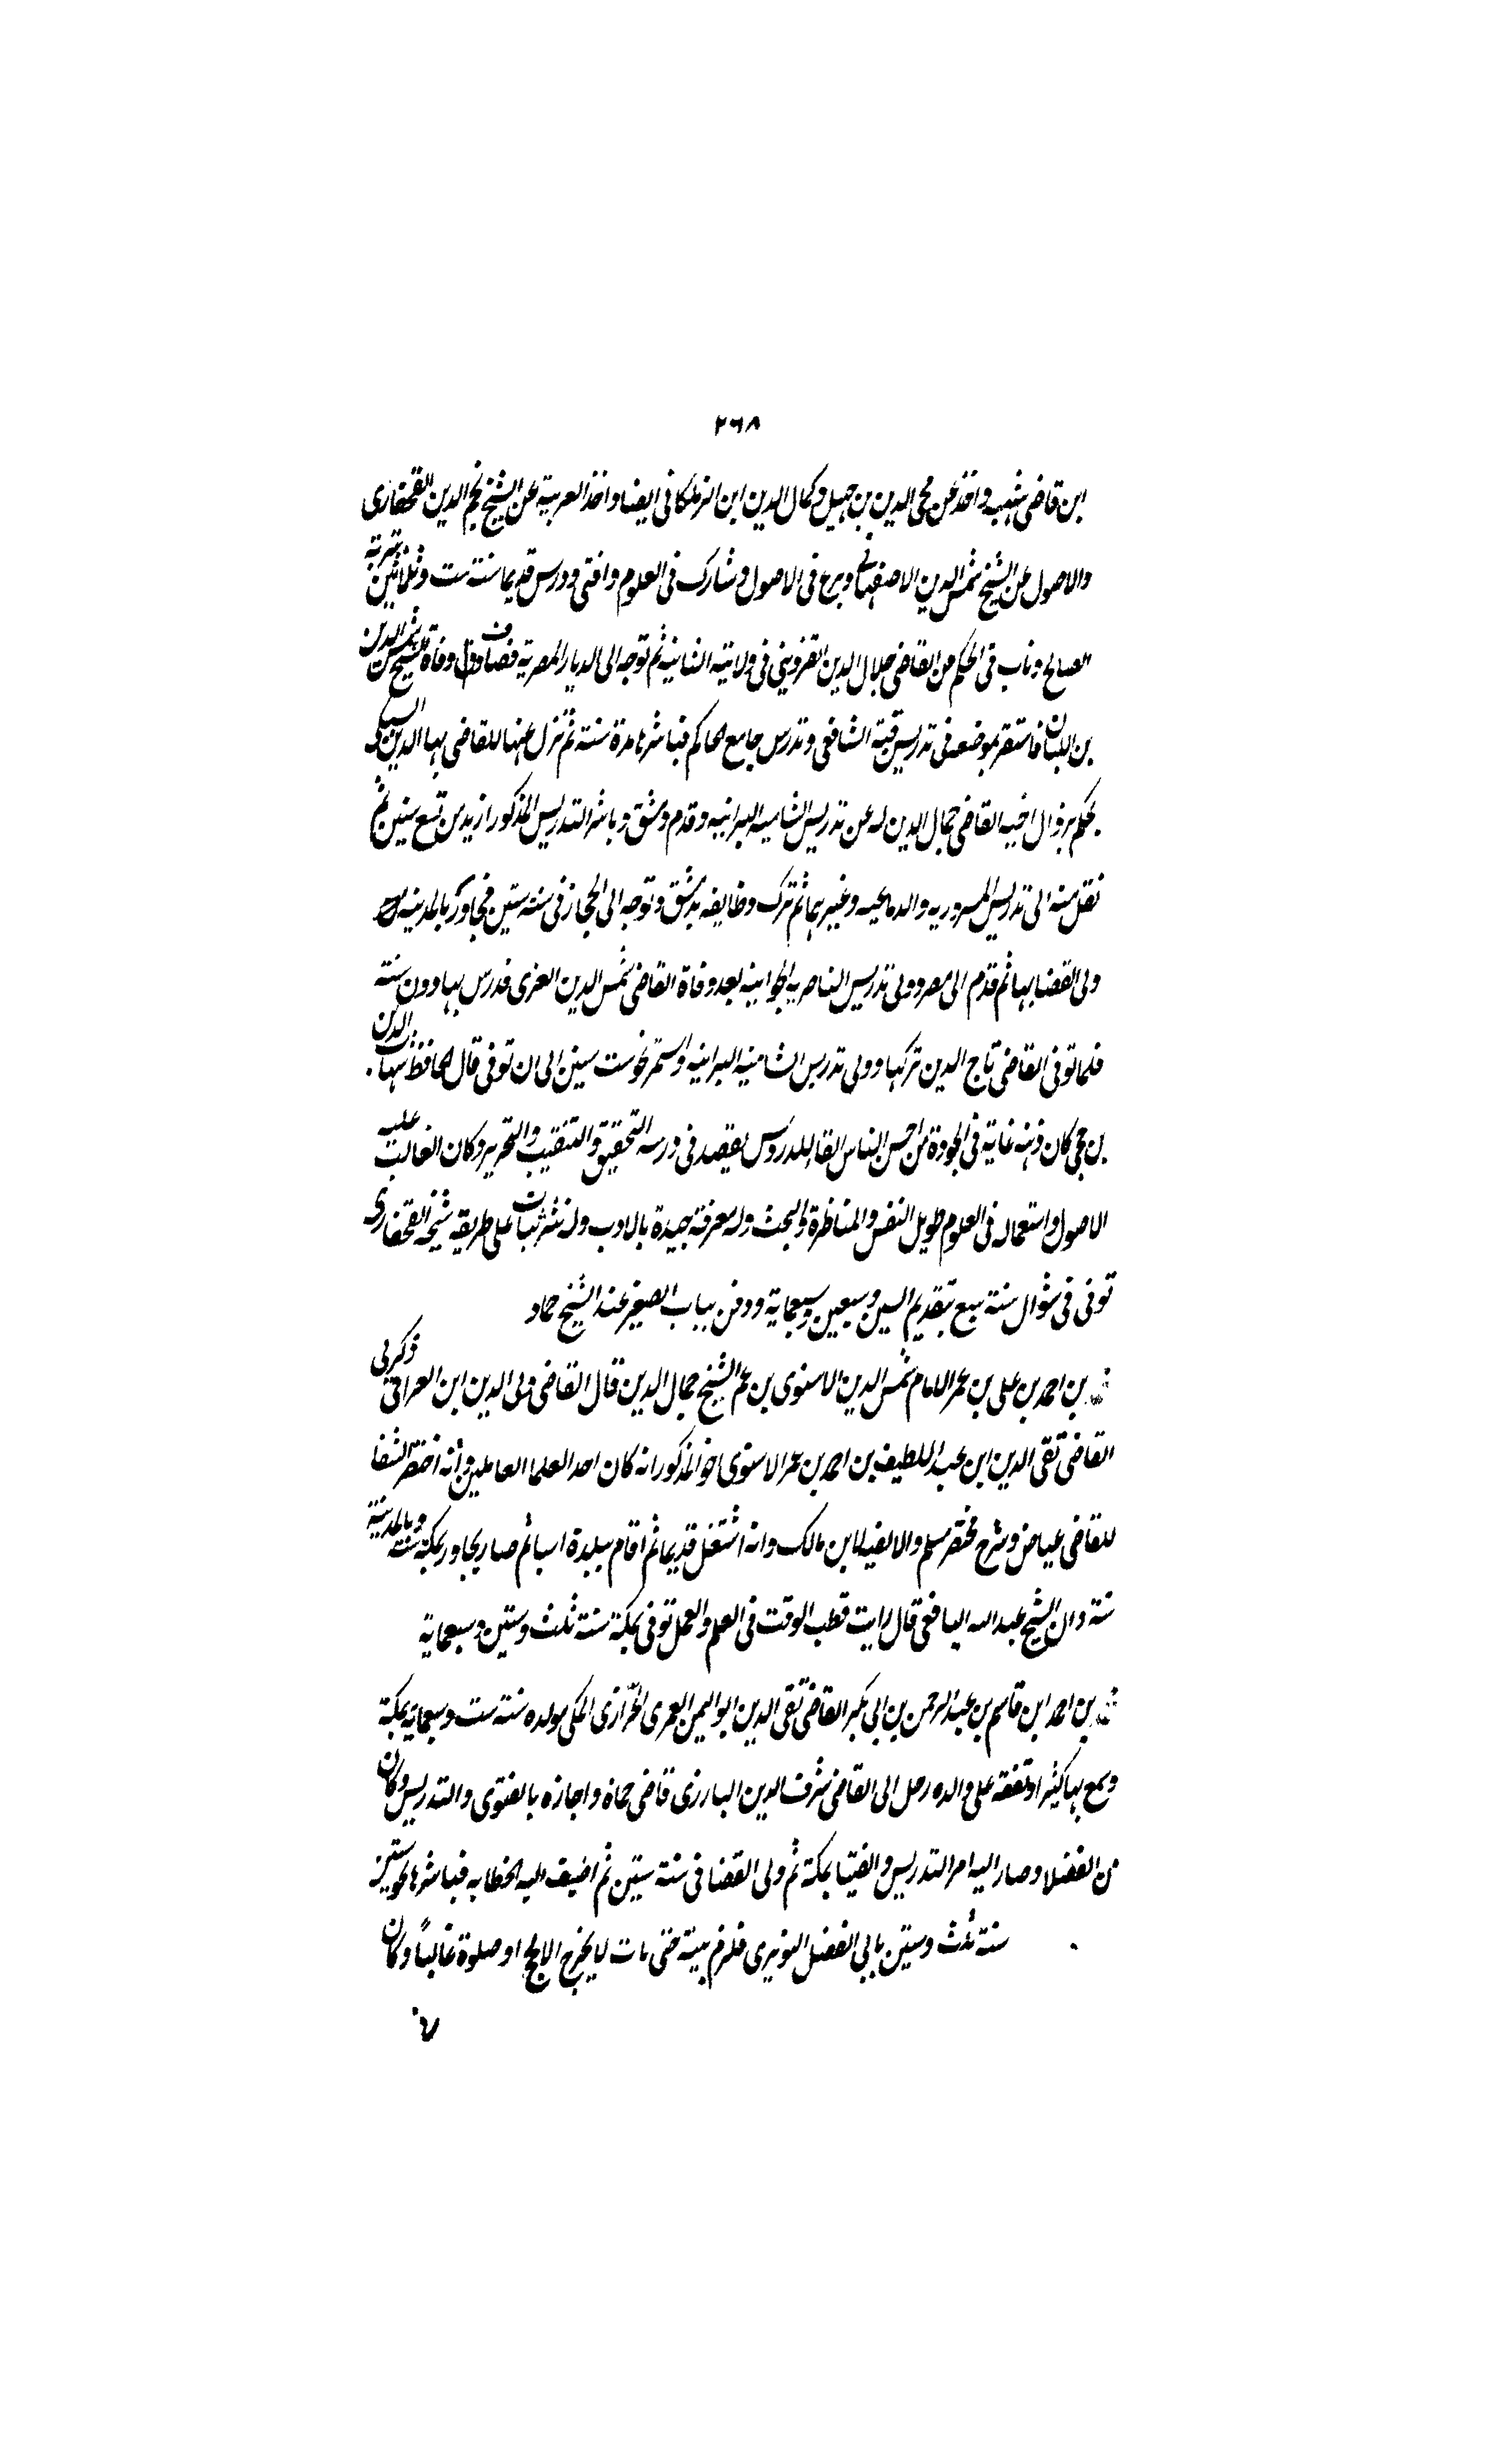 ٢٦٨
ابن قاضى شهبه واخذ عن محى الدين بن جهبل وكمال الدين ابن الزملكانى ايضا واخذ العربية عن الشيخ نجم الدين القحفازى
والاصول عن الشيخ شمس الدين الاصفهانى وبرع فى الاصول وشارك فى العلوم وافتى ودرس قديما سنة ست وثلاثين بتربة
الصالح وناب فى الحكم عن القاضى جلال الدين القزوينى فى ولايته الثانية ثم توجه الى الديار المصرية فصادف وفاة الشيخ شمس الدين
بن اللبان فاستقر موضعه فى تدريس قبة الشافعى وتدرس جامع الحاكم فباشرها مدة سنة ثم نزل عنها للقاضى بهاء الدين السبكى
بحكم نزول اخيه القاضى جمال الدين له عن تدريس الشاميه البرانيه وقدم دمشق وباشر التدريس المذكور ازيد من تسع سنين ثم
نقل منه الى تدريس المسروريه والدماغيه وغيرهما ثم ترك وظايفه بدمشق وتوجه الى الحجاز فى سنة ستين فجاور بالمدينه
ولى القضا بها ثم قدم الى مصر وولى تدريس الناصريه الجوانيه بعد وفاة القاضى شمس الدين الغزى فدرس بها دون سنة
فلما توفى القاضى تاج الدين تركها وولى تدريس الشاميه البرانيه واستمر نحو ست سنين الى ان توفى قال الحافظ شهاب الدين
بن حجى كان ذهنه غاية فى الجودة من احسن الناس القا للدروس يقصد فى درسه التحقيق والتنقيب والتحرير وكان الغالب عليه
الاصول واستعماله فى العلوم طويل النفس والمناظرة والبحث وله معرفة جيدة بالادب وله نثر نبات على طريقه شيخه القحفازى
توفى فى شوال سنة سبع بتقديم السين وسبعين وسبعماية ودفن بباب الصغير عند الشيخ حماد
بن احمد بن على بن عمر الامام شمس الدين الاسنوى بن عم الشيخ جمال الدين قال القاضى ولى الدين ابن العراقى ذكر لى
القاضى تقى الدين ابن عبد اللطيف بن احمد بن عمر الاسنوى اخو المذكور انه كان احد العلما العاملين وانه اختصر الشفا
للقاضى عياض وشرح مختصر مسلم والالفيه لابن مالك وانه اشتغل قديما ثم اقام ببلدة اسنا ثم صار يجاور بمكة سنة وبالمدينة
سنة وان الشيخ عبد الله اليافعى قال رايت قطب الوقت فى العلم والعمل توفى بمكة سنة ثلث وستين وسبعماية
بن احمد ابن قاسم بن عبد الرحمن بن ابى بكر القاضى تقى الدين ابو اليمن العمرى الحرازى المكى مولده سنة ست وسبعماية بمكة
وسمع بها كثيرا وتفقه على والده رحل الى القاضى شرف الدين البارزى قاضى حماة واجازه بالفتوى والتدريس وكان
من الفضلا وصار اليه امر التدريس والفتيا بمكة ثم ولى القضا فى سنة ستين ثم اضيف اليه الخطابه فباشرها نحو سنتين
سنة ثلث وستين بابى الفضل النويرى فلزم بيته حتى مات لا يخرج الا لحج او صلوة غالباً وكان